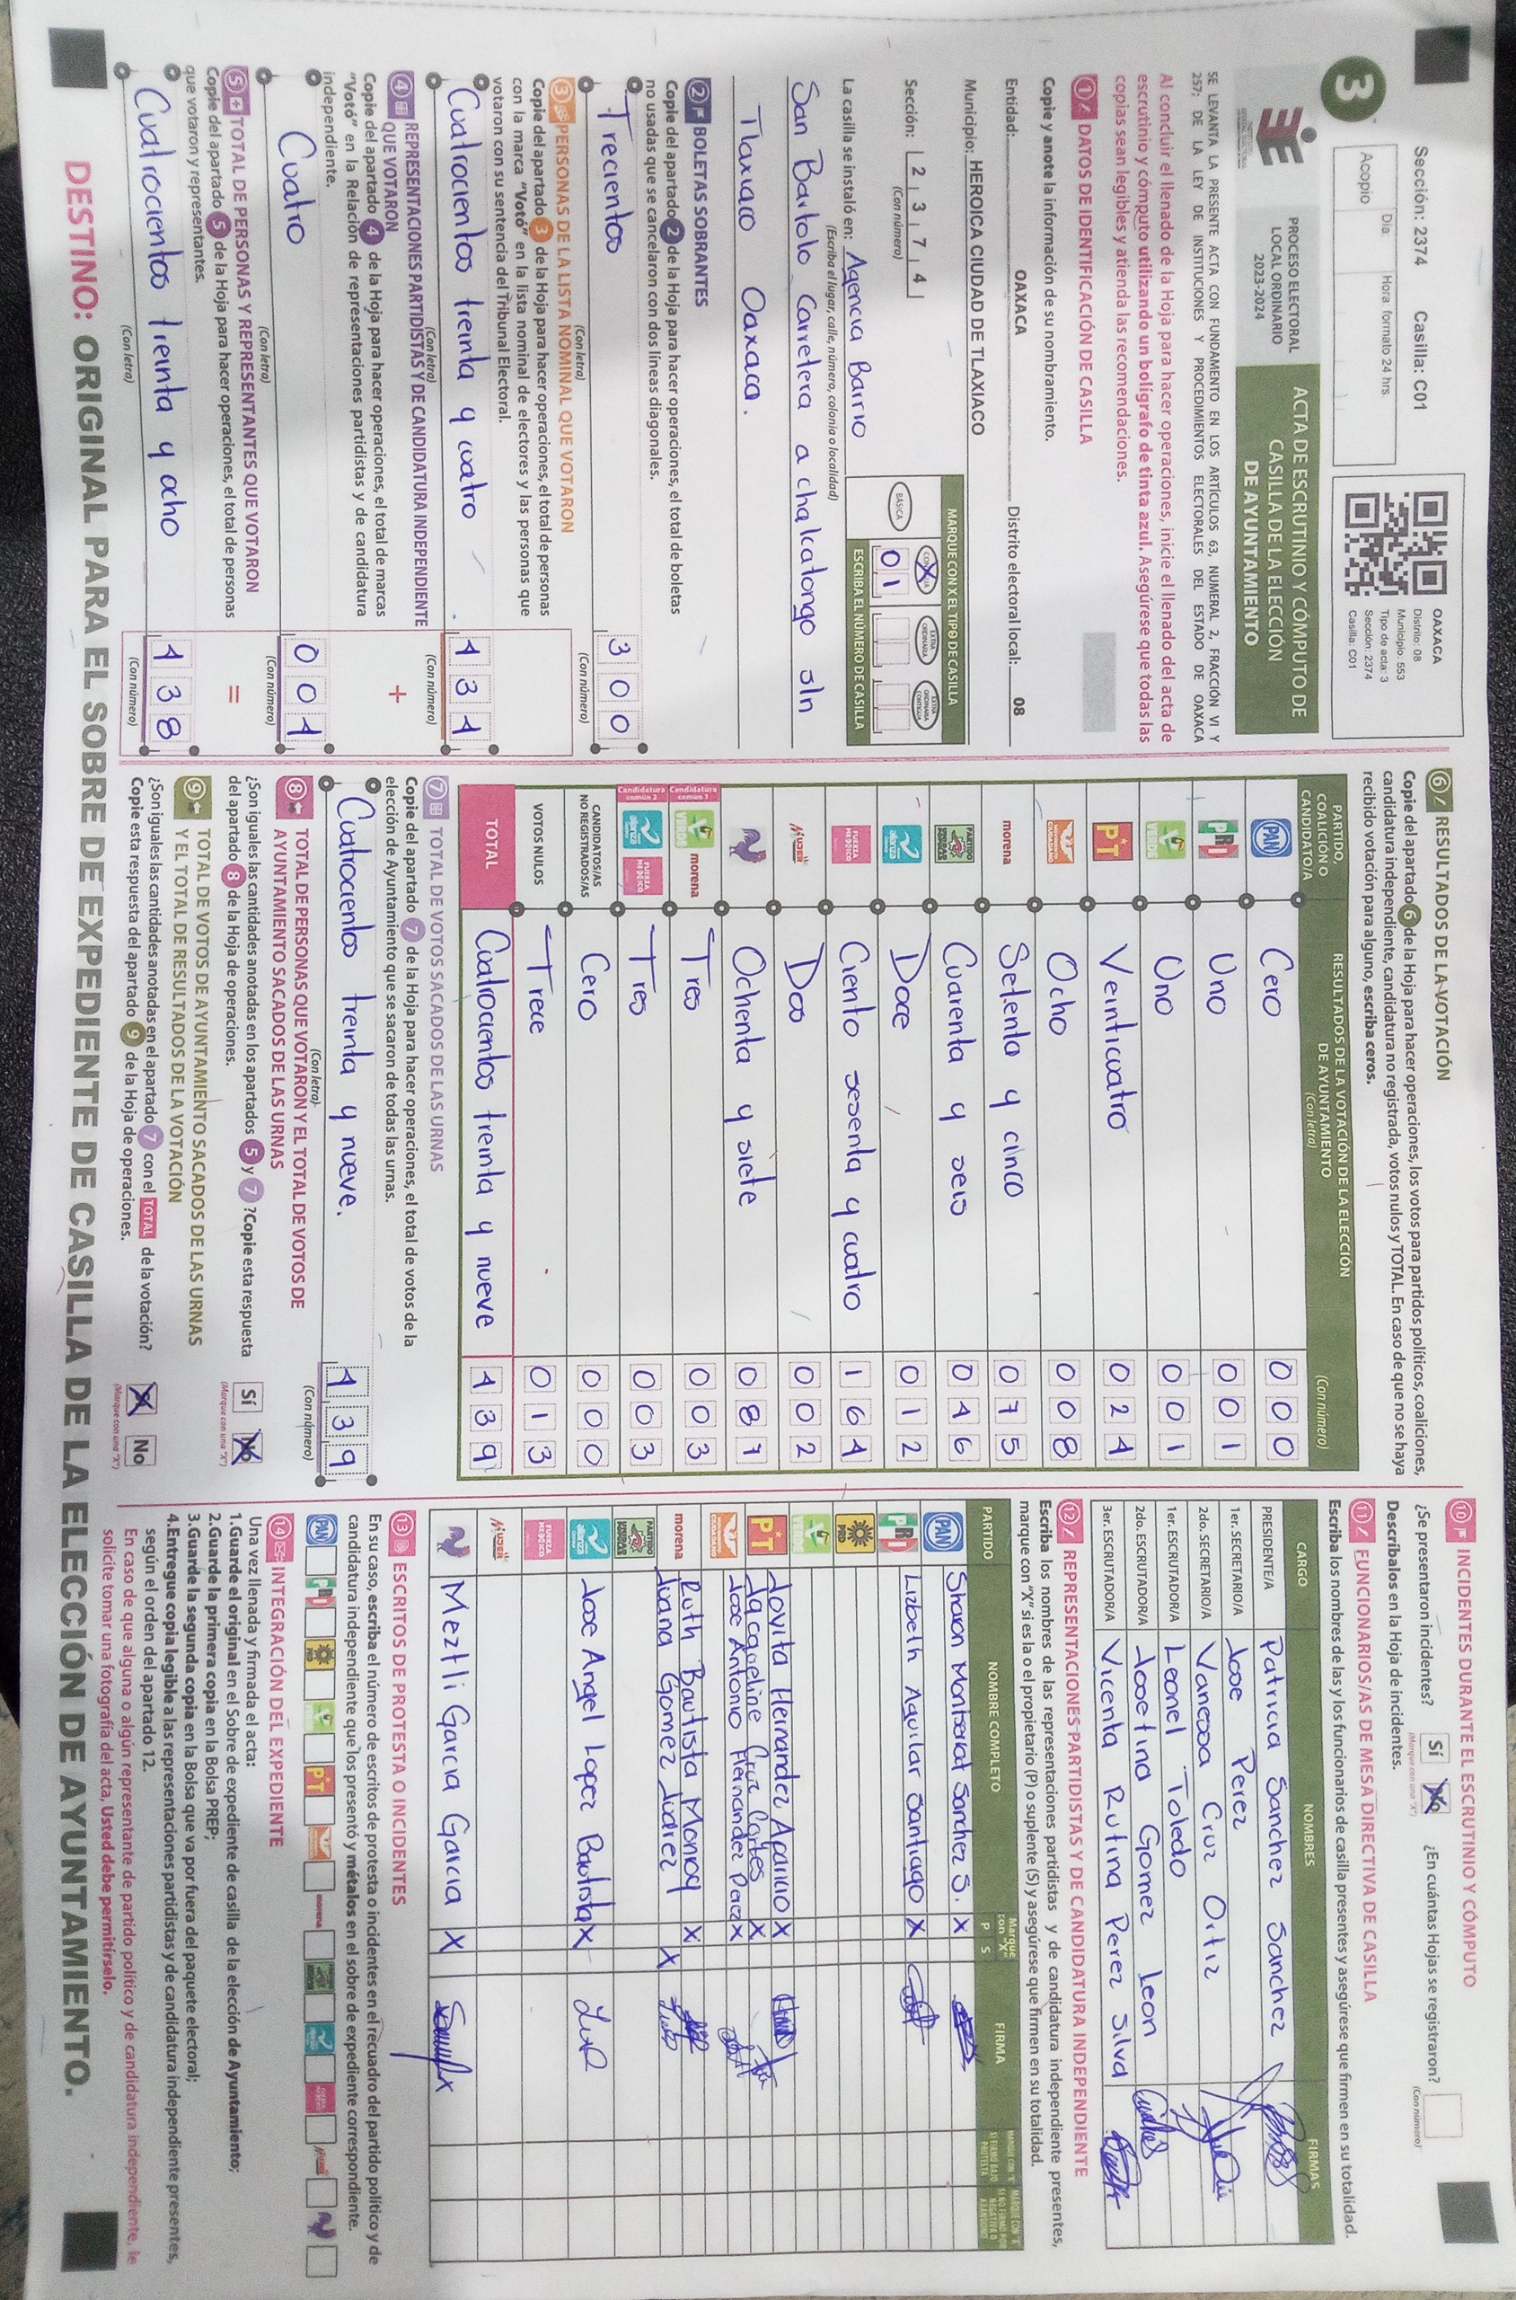 Sección: 2374 Casilla: C01
Día: Hora: formato 24 hrs.
Acopio
3
PROCESO ELECTORAL
LOCAL ORDINARIO
2023-2024
ACTA DE ESCRUTINIO Y CÓMPUTO DE
CASILLA DE LA ELECCIÓN
DE AYUNTAMIENTO
OAXACA
Distrito: 08
Municipio: 553
Tipo de acta: 3
Sección: 2374
Casilla: C01
SE LEVANTA LA PRESENTE ACTA CON FUNDAMENTO EN LOS ARTÍCULOS 63, NUMERAL 2, FRACCIÓN VI Y
257; DE LA LEY DE INSTITUCIONES Y PROCEDIMIENTOS ELECTORALES DEL ESTADO DE OAXACA
Al concluir el llenado de la Hoja para hacer operaciones, inicie el llenado del acta de
escrutinio y cómputo utilizando un bolígrafo de tinta azul. Asegúrese que todas las
copias sean legibles y atienda las recomendaciones.
1 DATOS DE IDENTIFICACIÓN DE CASILLA
Copie y anote la información de su nombramiento.
Entidad: OAXACA Distrito electoral local: 08
Municipio: HEROICA CIUDAD DE TLAXIACO
Sección: 2 3 7 4
(Con número)
MARQUE CON X EL TIPO DE CASILLA
BÁSICA X EXTRA ORDINARIA EXTRA ORDINARIA CONTIGUA
ESCRIBA EL NÚMERO DE CASILLA
01
La casilla se instaló en: Agencia Barrio
(Escriba el lugar, calle, número, colonia o localidad)
San Bartolo Carretera a chalcatongo s/n
Tlaxiaco Oaxaca.
2 BOLETAS SOBRANTES
Copie del apartado 2 de la Hoja para hacer operaciones, el total de boletas
no usadas que se cancelaron con dos líneas diagonales.
Trecientos 3 0 0
(Con letra) (Con número)
3 PERSONAS DE LA LISTA NOMINAL QUE VOTARON
Copie del apartado 3 de la Hoja para hacer operaciones, el total de personas
con la marca "Votó" en la lista nominal de electores y las personas que
votaron con su sentencia del Tribunal Electoral.
Cuatrocientos treinta y cuatro 4 3 4
(Con letra) (Con número)
4 REPRESENTACIONES PARTIDISTAS Y DE CANDIDATURA INDEPENDIENTE
QUE VOTARON
Copie del apartado 4 de la Hoja para hacer operaciones, el total de marcas
"Votó" en la Relación de representaciones partidistas y de candidatura
independiente.
+
Cuatro 0 0 4
(Con letra) (Con número)
5 TOTAL DE PERSONAS Y REPRESENTANTES QUE VOTARON
Copie del apartado 5 de la Hoja para hacer operaciones, el total de personas
que votaron y representantes.
=
Cuatrocientos treinta y ocho 4 3 8
(Con letra) (Con número)
6 RESULTADOS DE LA VOTACIÓN
Copie del apartado 6 de la Hoja para hacer operaciones, los votos para partidos políticos, coaliciones,
candidatura independiente, candidatura no registrada, votos nulos y TOTAL. En caso de que no se haya
recibido votación para alguno, escriba ceros.
PARTIDO, COALICIÓN O CANDIDATO/A RESULTADOS DE LA VOTACIÓN DE LA ELECCIÓN DE AYUNTAMIENTO (Con letra) (Con número)
PAN Cero 0 0 0
PRI Uno 0 0 1
VERDE Uno 0 0 1
PT Veinticuatro 0 2 4
MOVIMIENTO CIUDADANO Ocho 0 0 8
morena Setenta y cinco 0 7 5
PARTIDO UNIDAD POPULAR Cuarenta y seis 0 4 6
nueva alianza Doce 0 1 2
FUERZA MÉXICO Ciento sesenta y cuatro 1 6 4
MUJER Dos 0 0 2
Ochenta y siete 0 8 7
Candidatura común 1 VERDE morena Tres 0 0 3
Candidatura común 2 nueva alianza FUERZA MÉXICO Tres 0 0 3
CANDIDATOS/AS NO REGISTRADOS/AS Cero 0 0 0
VOTOS NULOS Trece 0 1 3
TOTAL Cuatrocientos treinta y nueve 4 3 9
7 TOTAL DE VOTOS SACADOS DE LAS URNAS
Copie del apartado 7 de la Hoja para hacer operaciones, el total de votos de la
elección de Ayuntamiento que se sacaron de todas las urnas.
Cuatrocientos treinta y nueve. 4 3 9
(Con letra) (Con número)
8 TOTAL DE PERSONAS QUE VOTARON Y EL TOTAL DE VOTOS DE
AYUNTAMIENTO SACADOS DE LAS URNAS
¿Son iguales las cantidades anotadas en los apartados 5 y 7 ? Copie esta respuesta
del apartado 8 de la Hoja de operaciones.
Sí No
(Marque con una "X")
9 TOTAL DE VOTOS DE AYUNTAMIENTO SACADOS DE LAS URNAS
Y EL TOTAL DE RESULTADOS DE LA VOTACIÓN
¿Son iguales las cantidades anotadas en el apartado 7 con el TOTAL de la votación?
Copie esta respuesta del apartado 9 de la Hoja de operaciones.
Sí No
(Marque con una "X")
10 INCIDENTES DURANTE EL ESCRUTINIO Y CÓMPUTO
¿Se presentaron incidentes? Sí No ¿En cuántas Hojas se registraron?
(Marque con una "X") (Con número)
Descríbalos en la Hoja de incidentes.
11 FUNCIONARIOS/AS DE MESA DIRECTIVA DE CASILLA
Escriba los nombres de las y los funcionarios de casilla presentes y asegúrese que firmen en su totalidad.
CARGO NOMBRES FIRMAS
PRESIDENTE/A Patricia Sanchez Sanchez
1er. SECRETARIO/A Jose Perez
2do. SECRETARIO/A Vanessa Cruz Ortiz
1er. ESCRUTADOR/A Leonel Toledo
2do. ESCRUTADOR/A Josefina Gomez Leon
3er. ESCRUTADOR/A Vicenta Rufina Perez Silva
12 REPRESENTACIONES PARTIDISTAS Y DE CANDIDATURA INDEPENDIENTE
Escriba los nombres de las representaciones partidistas y de candidatura independiente presentes,
marque con "X" si es la o el propietario (P) o suplente (S) y asegúrese que firmen en su totalidad.
PARTIDO NOMBRE COMPLETO Marque con "X" P S FIRMA MARQUE CON "X" SI FIRMÓ BAJO PROTESTA MARQUE CON "X" SI NO FIRMÓ POR NEGATIVA O ABANDONO
PAN Sharon Montserat Sanchez S. X
PRI Lizbeth Aquilar Santiago X
PRD
VERDE
PT Jovita Hernandez Aparicio X
Jacqueline Cruz Cortes X
MOVIMIENTO CIUDADANO Jose Antonio Hernandez Perez X
morena Ruth Bautista Monroy X
Juana Gomez Juarez X
PARTIDO UNIDAD POPULAR
nueva alianza Jose Angel Lopez Bautista X
FUERZA MÉXICO
MUJER
Meztli Garcia Garcia X
13 ESCRITOS DE PROTESTA O INCIDENTES
En su caso, escriba el número de escritos de protesta o incidentes en el recuadro del partido político y de
candidatura independiente que los presentó y métalos en el sobre de expediente correspondiente.
PAN PRI PRD VERDE PT morena
14 INTEGRACIÓN DEL EXPEDIENTE
Una vez llenada y firmada el acta:
1.Guarde el original en el Sobre de expediente de casilla de la elección de Ayuntamiento;
2.Guarde la primera copia en la Bolsa PREP;
3.Guarde la segunda copia en la Bolsa que va por fuera del paquete electoral;
4.Entregue copia legible a las representaciones partidistas y de candidatura independiente presentes,
según el orden del apartado 12.
En caso de que alguna o algún representante de partido político y de candidatura independiente, le
solicite tomar una fotografía del acta, Usted debe permitírselo.
DESTINO: ORIGINAL PARA EL SOBRE DE EXPEDIENTE DE CASILLA DE LA ELECCIÓN DE AYUNTAMIENTO.